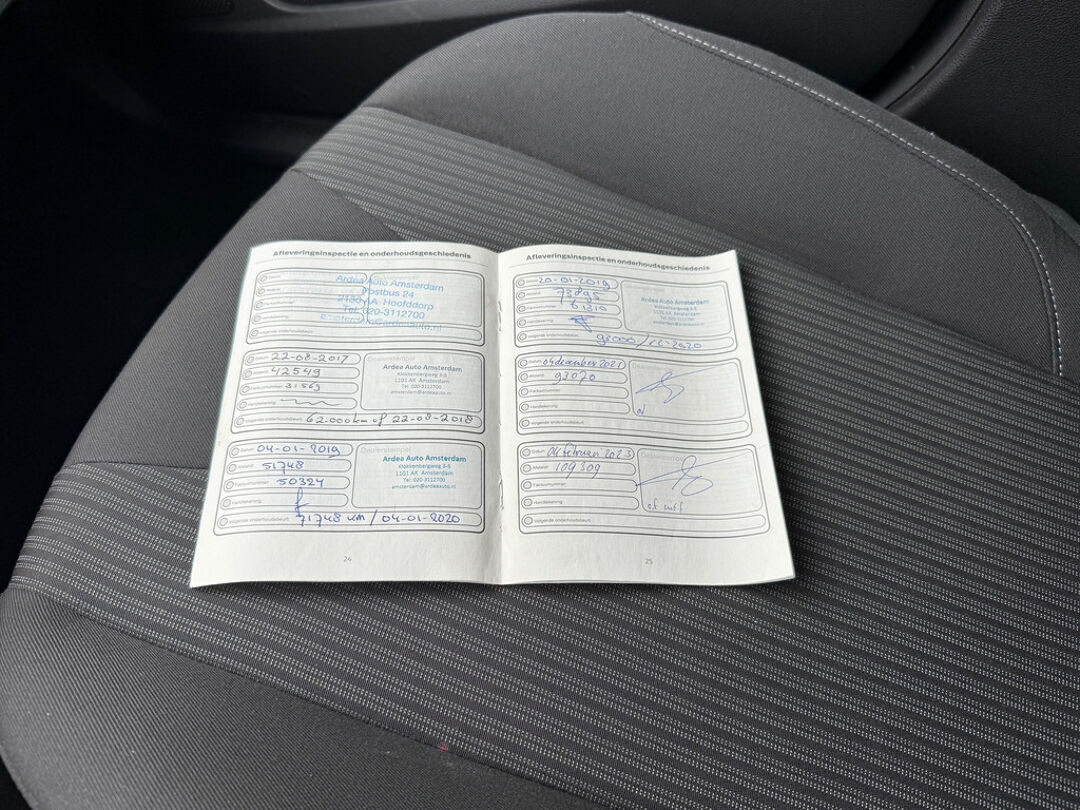 Afleveringsinspectie en onderhoudsgeschiedenis
Ardea Auto Amsterdam
Postbus 24
2130 AA Hoofddorp
Tel. 020-3112700
amsterdam@ardeaauto.nl
Volgende onderhoudsbeurt
Datum 22-08-2017
Afstand 42549
Factuurnummer 31569
Handtekening
Volgende onderhoudsbeurt 62.000km of 22-08-2018
Dealerstempel
Ardea Auto Amsterdam
Klokkenbergweg 3-5
1101 AK Amsterdam
Tel. 020-3112700
amsterdam@ardeaauto.nl
Datum 04-01-2019
Afstand 51748
Factuurnummer 50324
Handtekening
Volgende onderhoudsbeurt 71748 km / 04-01-2020
Dealerstempel
Ardea Auto Amsterdam
Klokkenbergweg 3-5
1101 AK Amsterdam
Tel. 020-3112700
amsterdam@ardeaauto.nl
24
Afleveringsinspectie en onderhoudsgeschiedenis
20-01-2019
Afstand 73895
61310
Handtekening
Volgende onderhoudsbeurt 93000 /
Ardea Auto Amsterdam
Klokkenbergweg 3-5
1101 AK Amsterdam
Tel. 020-3112700
amsterdam@ardeaauto.nl
Datum 04 december 2021
Afstand 93020
Factuurnummer
Handtekening
Volgende onderhoudsbeurt
Datum 04 februari 2023
Afstand 109309
Factuurnummer
Handtekening
Volgende onderhoudsbeurt
25